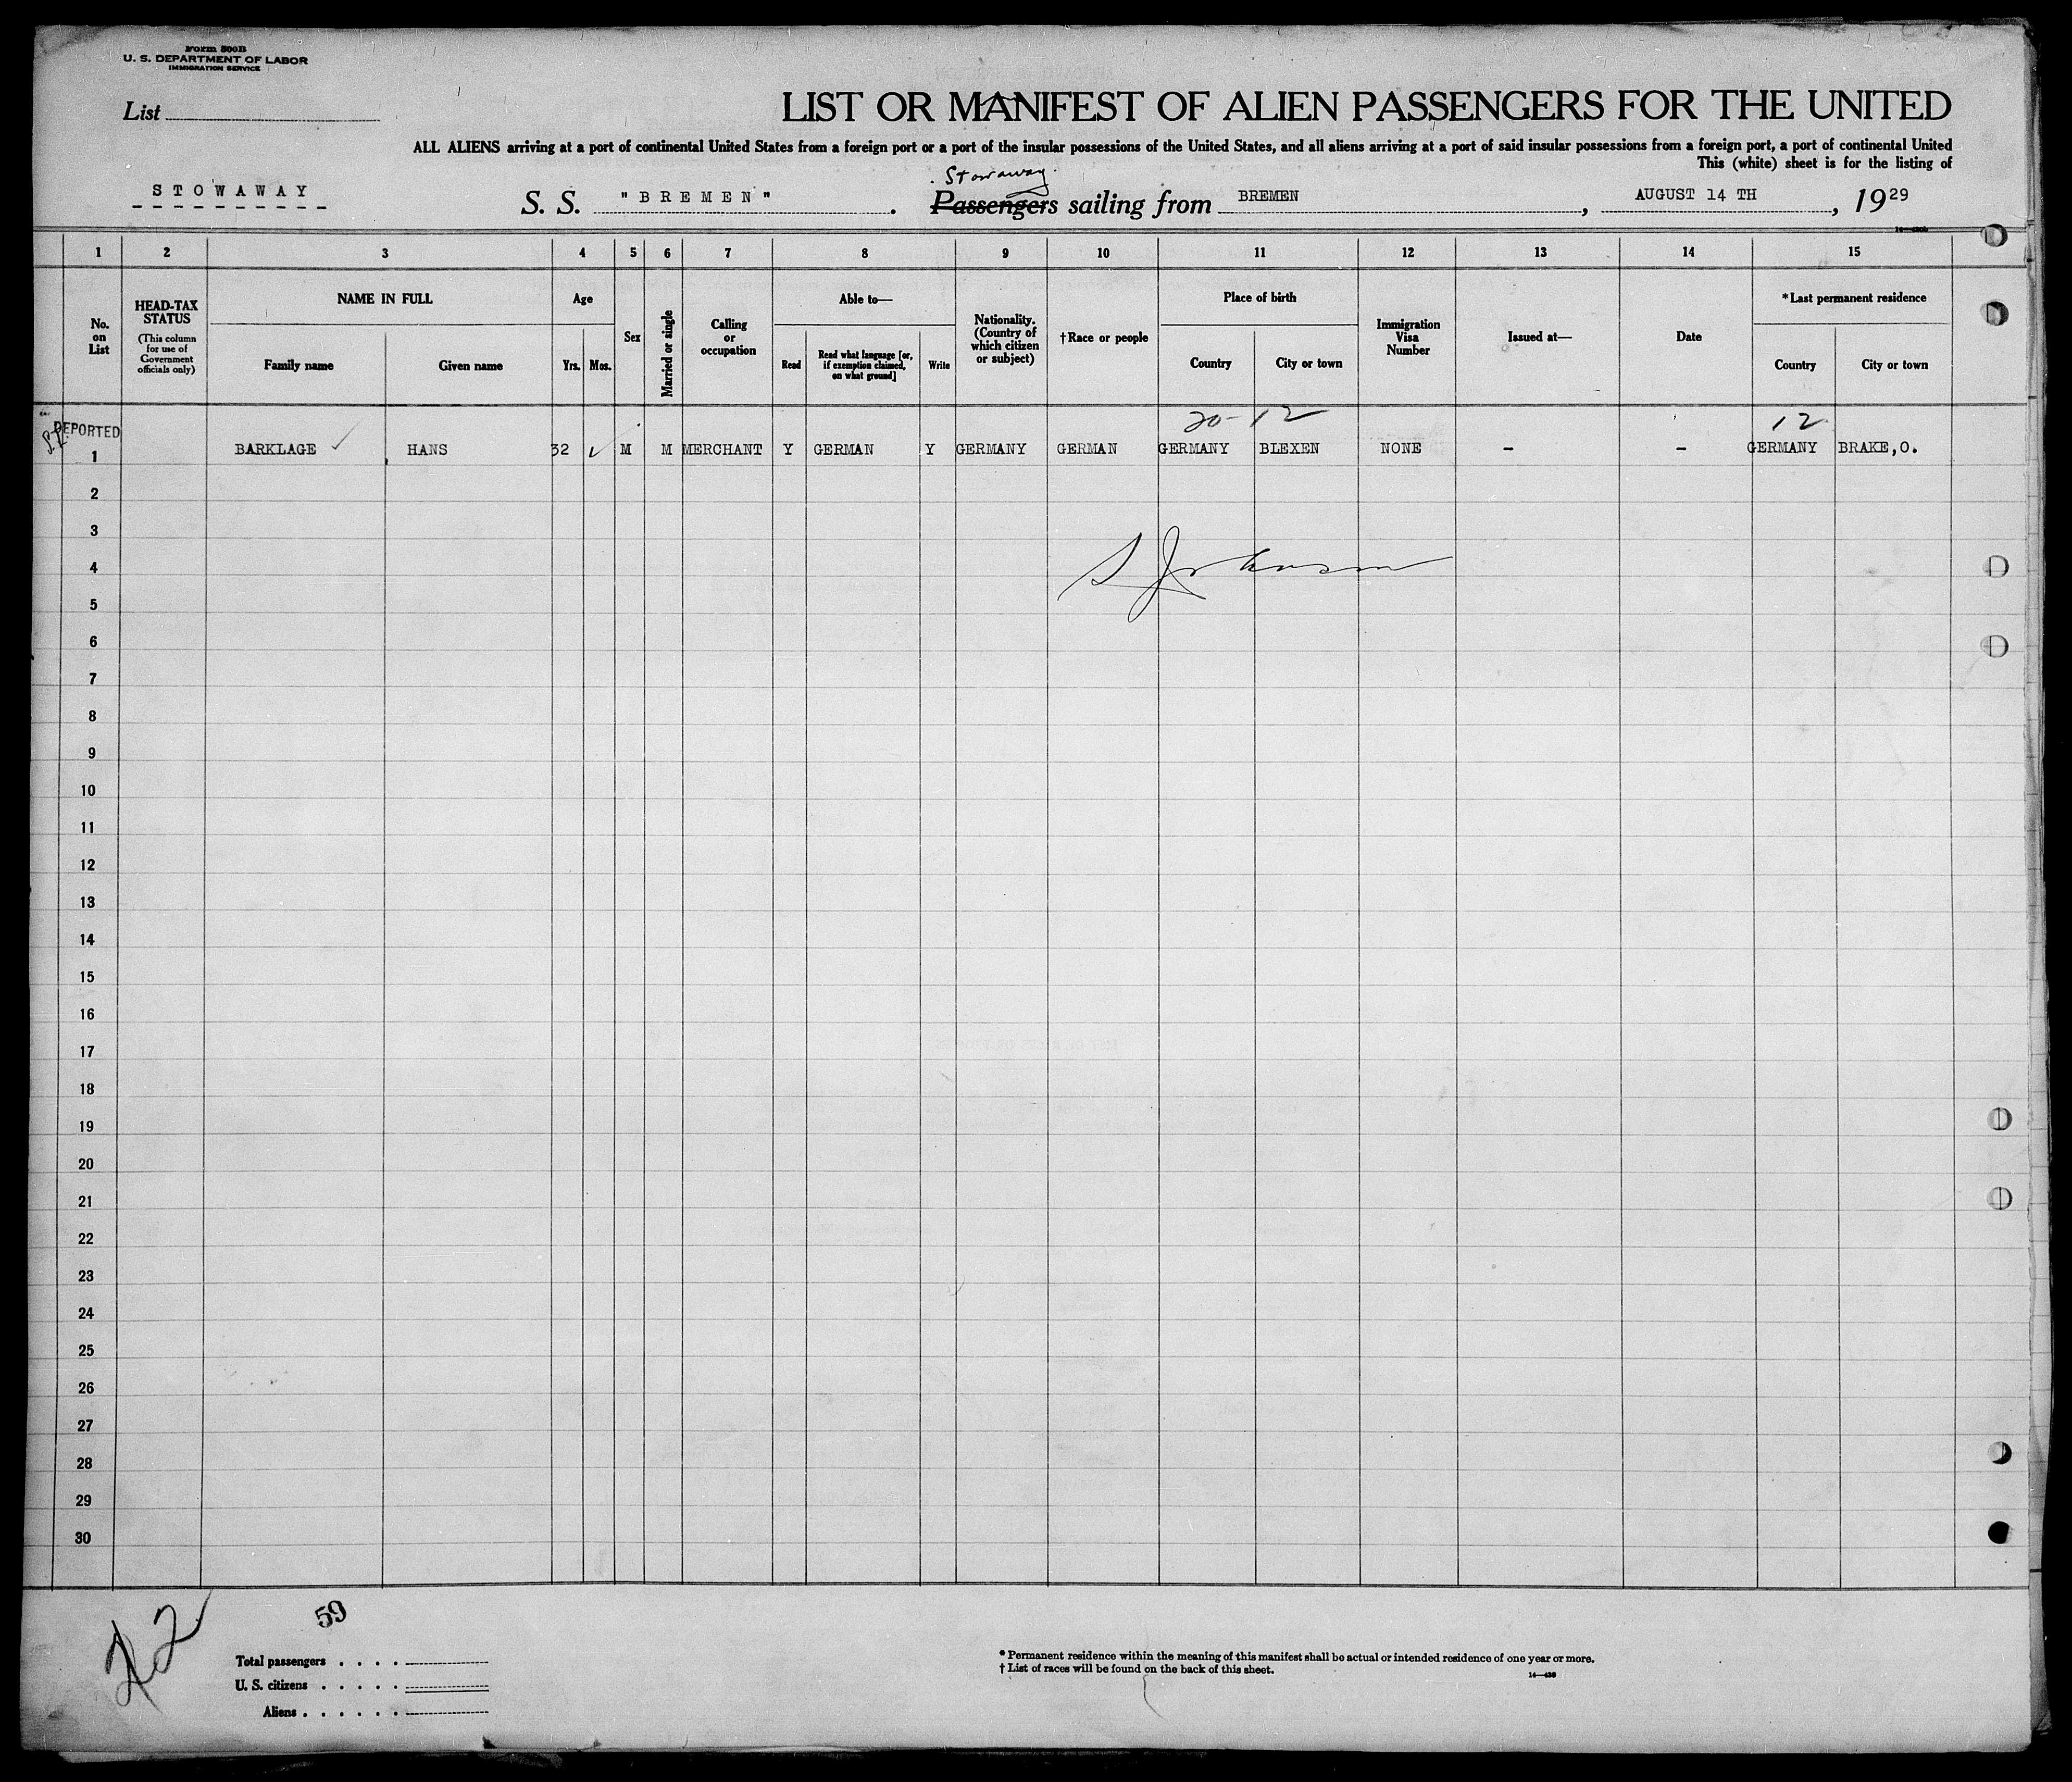 Form 500B
U. S. DEPARTMENT OF LABOR
IMMIGRATION SERVICE
List
LIST OR MANIFEST OF ALIEN PASSENGERS FOR THE UNITED
ALL ALIENS arriving at a port of continental United States from a foreign port or a port of the insular possessions of the United States, and all aliens arriving at a port of said insular possessions from a foreign port, a port of continental United
This (white) sheet is for the listing of
Stowaway
STOWAWAY S. S. "BREMEN". Passengers sailing from BREMEN, AUGUST 14 TH, 1929
1 2 3 4 5 6 7 8 9 10 11 12 13 14 15
No. on List
HEAD-TAX STATUS
(This column for use of Government officials only)
NAME IN FULL
Family name Given name
Age
Yrs. Mos.
Sex
Married or single
Calling or occupation
Able to—
Read
Read what language [or, if exemption claimed, on what ground]
Write
Nationality. (Country of which citizen or subject)
†Race or people
Place of birth
Country City or town
Immigration Visa Number
Issued at—
Date
*Last permanent residence
Country City or town
20-12 12
DEPORTED
1 BARKLAGE ✓ HANS 32 ✓ M M MERCHANT Y GERMAN Y GERMANY GERMAN GERMANY BLEXEN NONE – – GERMANY BRAKE,O.
2
3
4 S Johnson
5
6
7
8
9
10
11
12
13
14
15
16
17
18
19
20
21
22
23
24
25
26
27
28
29
30
59
Total passengers . . . .
U. S. citizens . . . . .
Aliens . . . . . .
* Permanent residence within the meaning of this manifest shall be actual or intended residence of one year or more.
† List of races will be found on the back of this sheet.